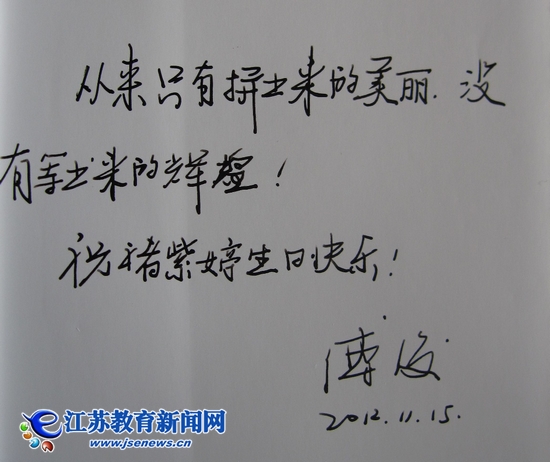 从来只有拼出来的美丽.没
有等出来的辉煌!
祝褚紫婷生日快乐!
傅
2012.11.15.
江苏教育新闻网
www.jsenews.cn